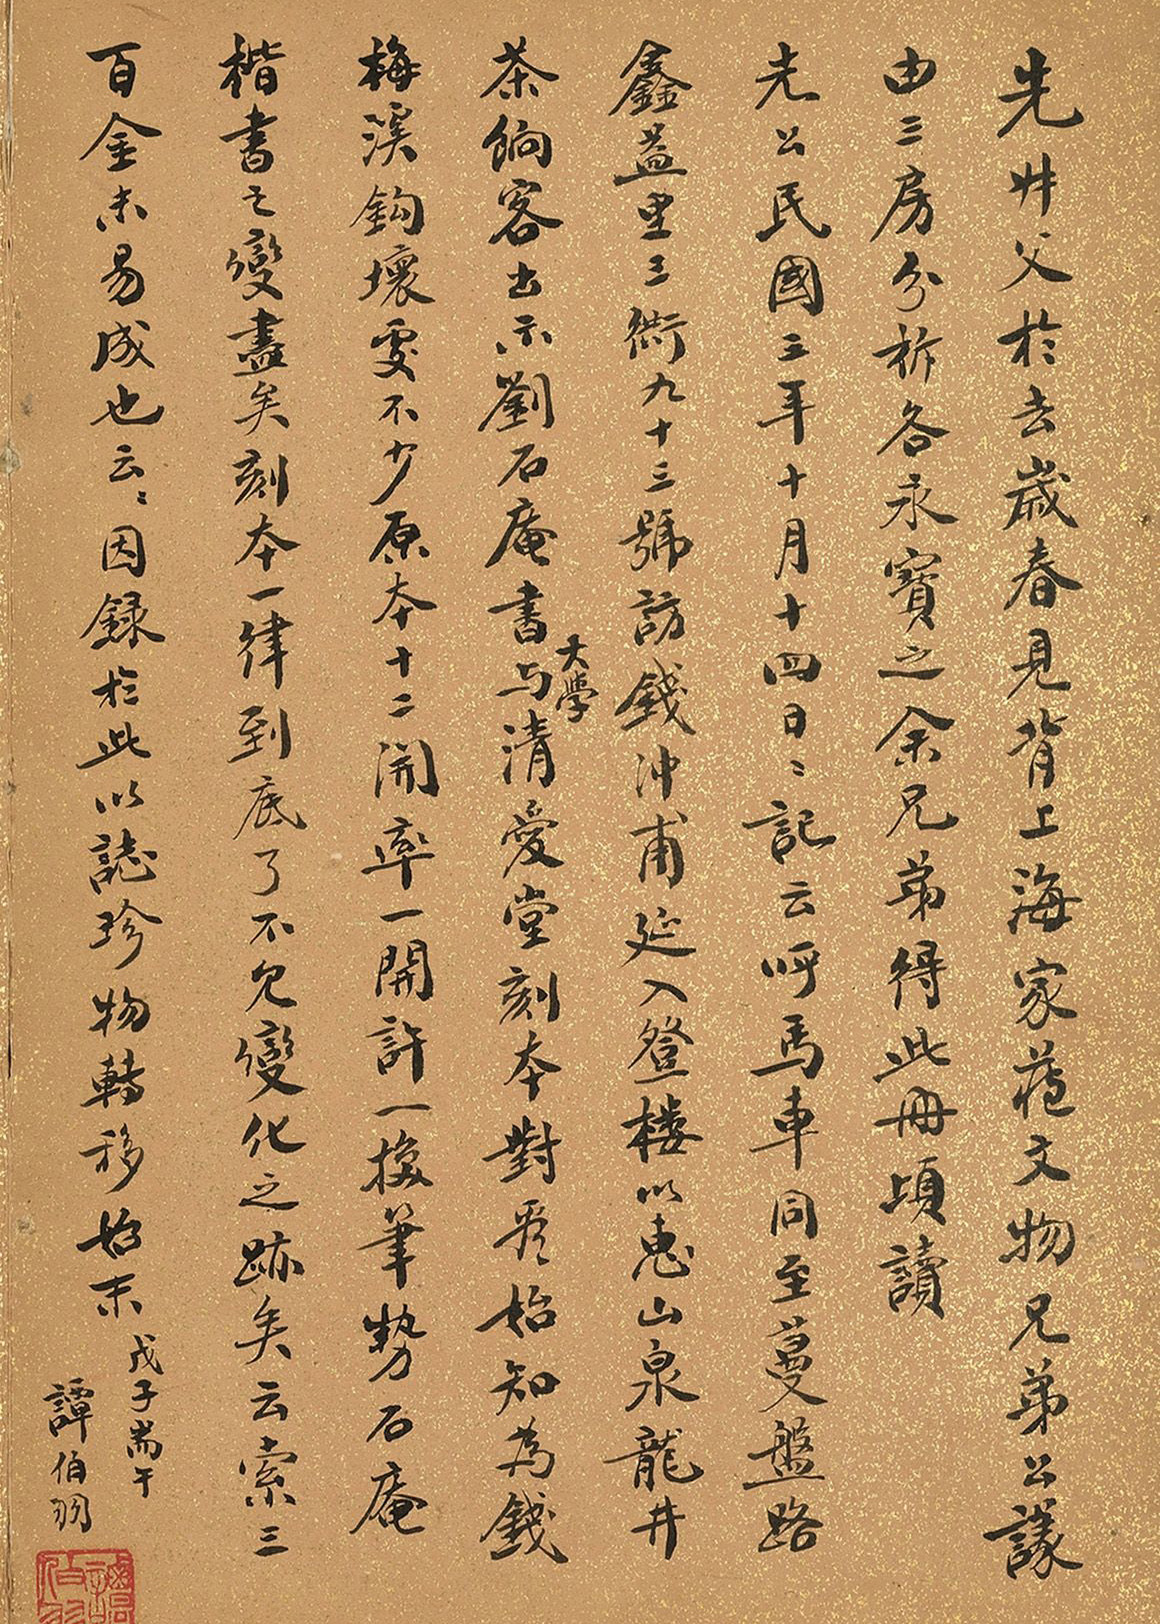 先叔父於去歲春見背上海家藏文物兄弟公議
由三房分析各永寶之余兄弟得此冊頃讀
先公民國三年十月十四日〻記云呼馬車同至蔓盤路
鑫益里三衖九十三號訪錢沖甫延入登樓以惠山泉龍井
茶餉客出示劉石庵書大學与清愛堂刻本對看始知為錢
梅溪鈎壞處不少原本十二開率一開許一換筆勢石庵
楷書之變盡矣刻本一律到底了不見變化之跡矣云索三
百金未易成也云〻因録於此以誌珍物轉移始末
戊子端午
譚伯羽
譚伯羽